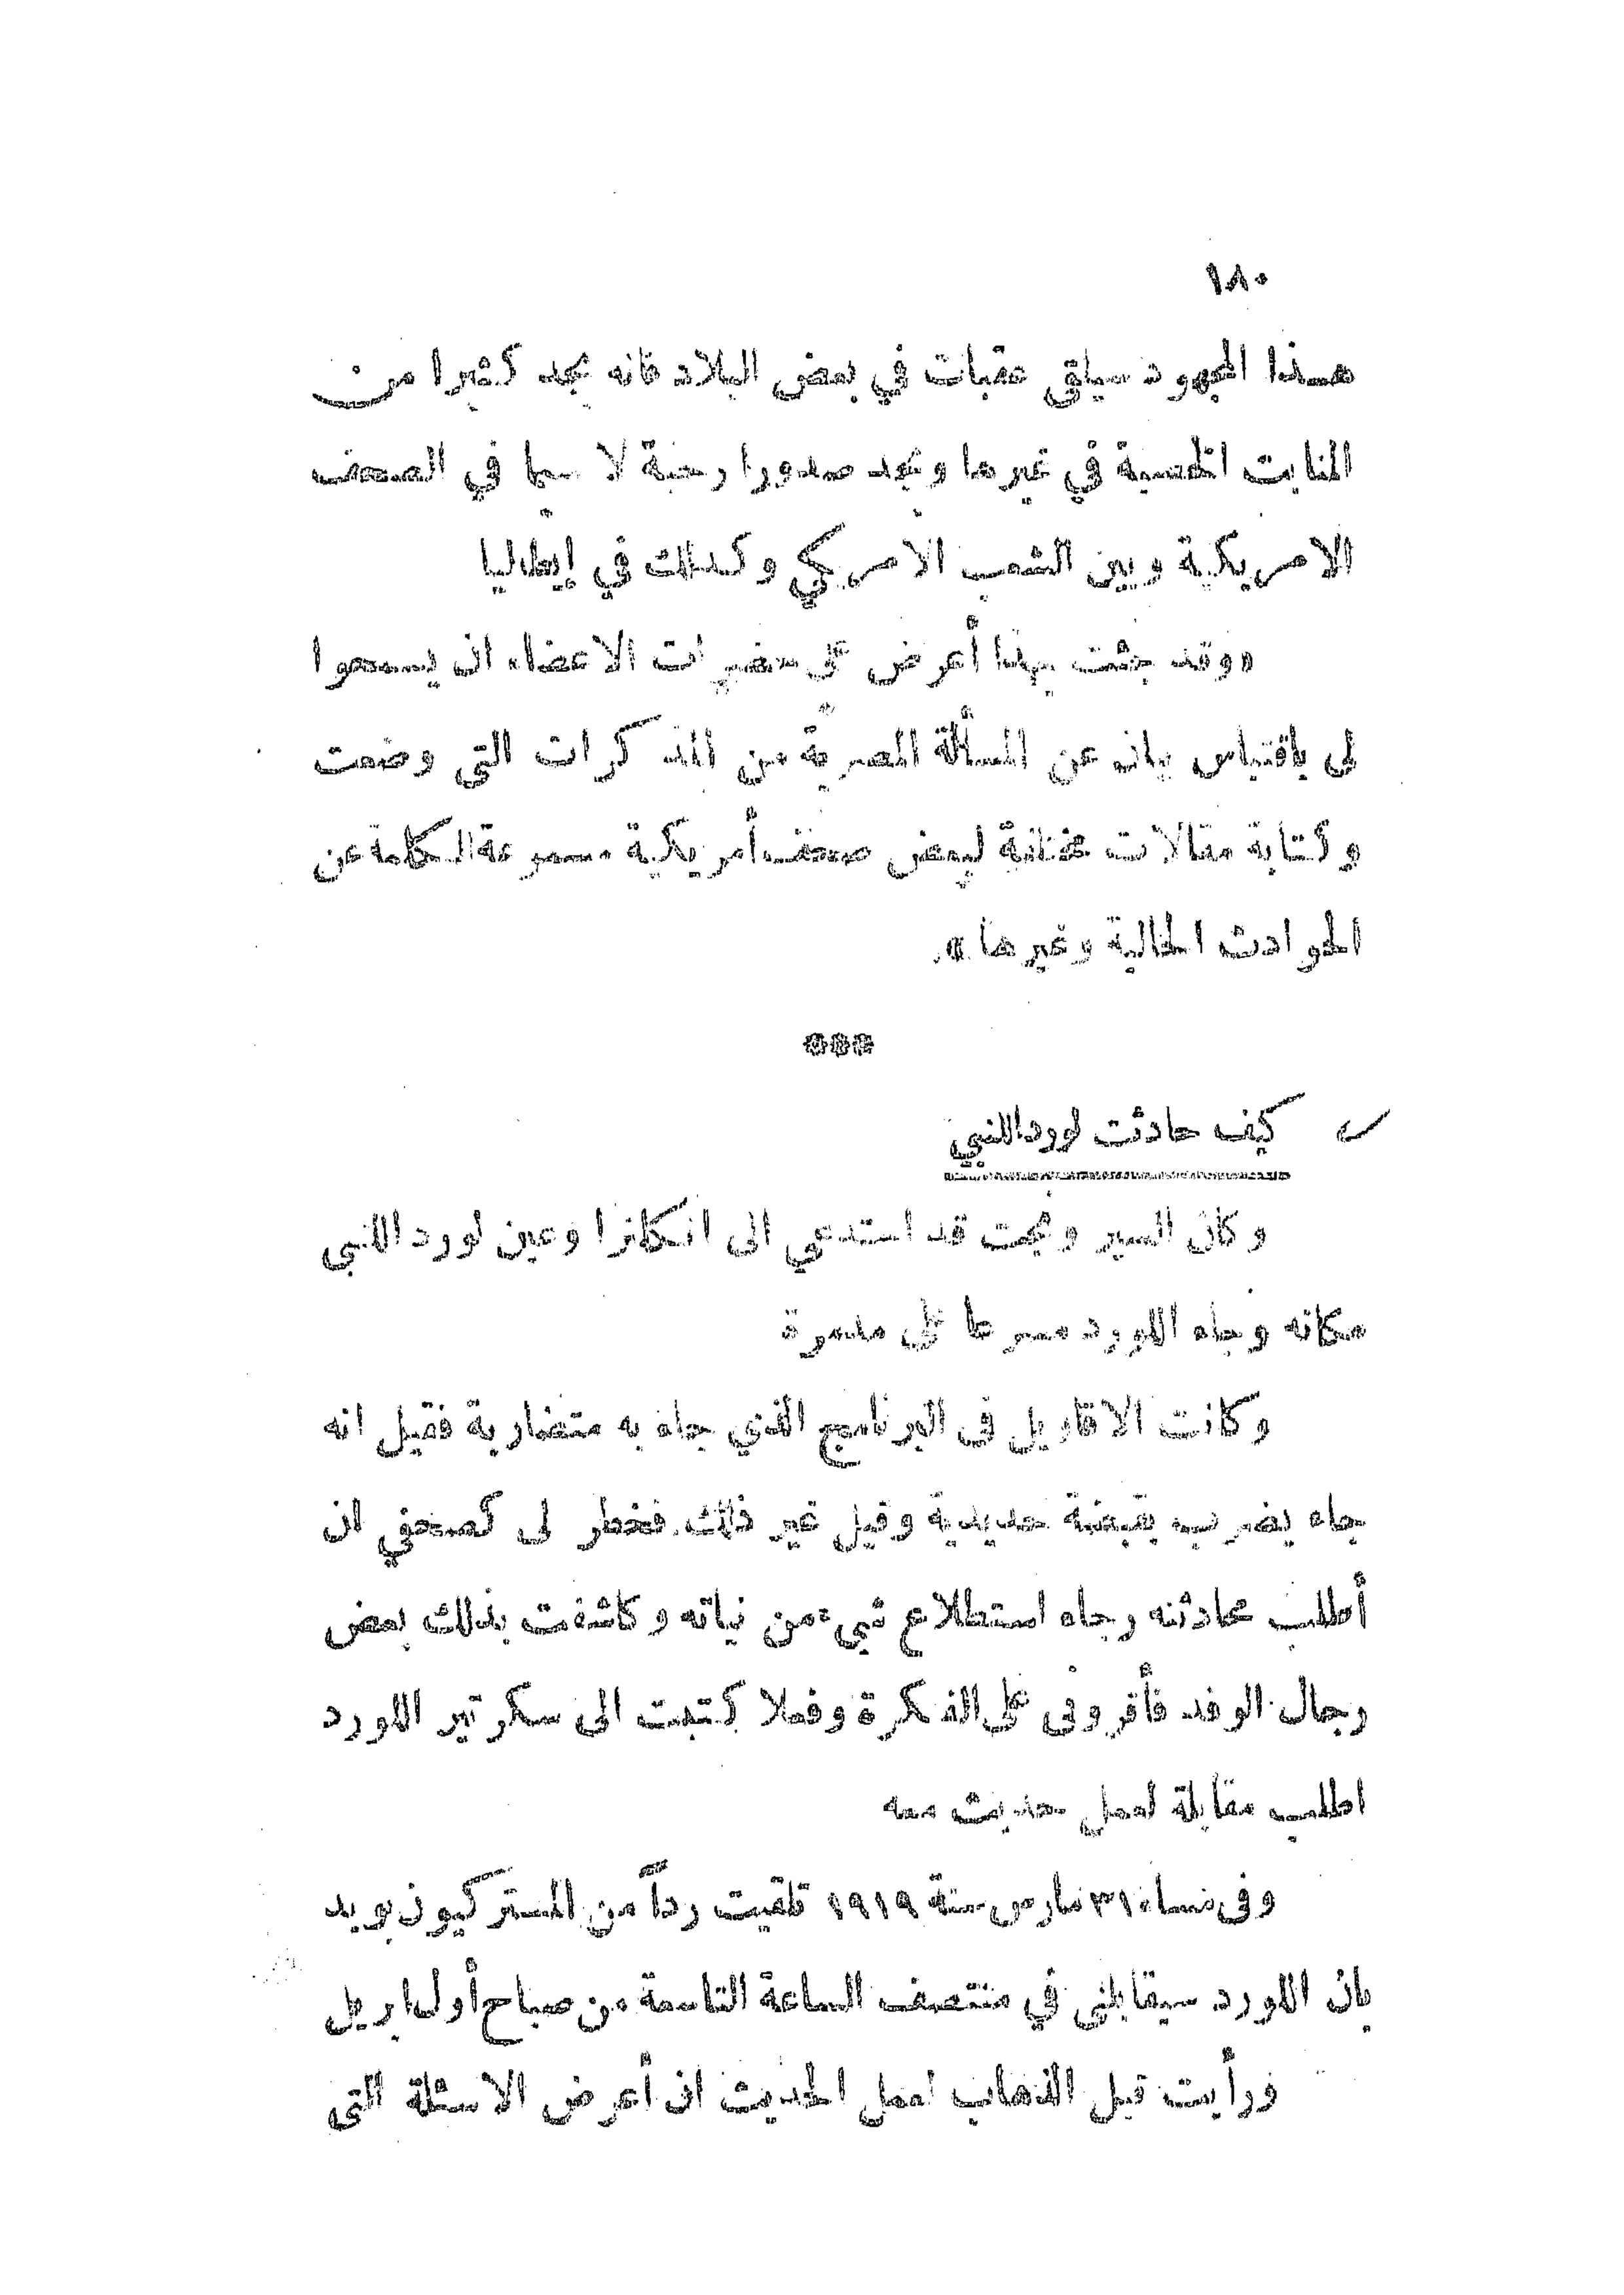 ١٨٠
هذا المجهود سيلقى عقبات في بعض البلاد فانه يجد كثيرا من
المنابت الخصبة في غيرها ويجد صدورا رحبة لا سيما في الصحف
الامريكية وبين الشعب الامريكي وكذلك في إيطاليا
«وقد جئت بهذا أعرض على حضرات الاعضاء ان يسمحوا
لى باقتباس بيان عن المسألة المصرية من المذكرات التي وضعت
وكتابة مقالات مختلفة لبعض صحف أمريكية مسموعة الكلمة عن
الحوادث الحالية وغيرها».
***
كيف حادثت لورد اللنبي
وكان السير ونجت قد استدعي الى انكلترا وعين لورد اللنبي
مكانه وجاء اللورد مسرعا على مدمرة
وكانت الاقاويل فى البرنامج الذي جاء به متضاربة فقيل انه
جاء يضرب بقبضة حديدية وقيل غير ذلك. فخطر لى كصحفي ان
أطلب محادثته رجاء استطلاع شيء من نياته وكاشفت بذلك بعض
رجال الوفد فأقرونى على الفكرة وفعلا كتبت الى سكرتير اللورد
اطلب مقابلة لعمل حديث معه
وفى مساء ٣١ مارس سنة ١٩١٩ تلقيت رداً من المستر كيون بويد
بان اللورد سيقابلنى في منتصف الساعة التاسعة من صباح أول ابريل
ورأيت قبل الذهاب لعمل الحديث ان أعرض الاسئلة التى